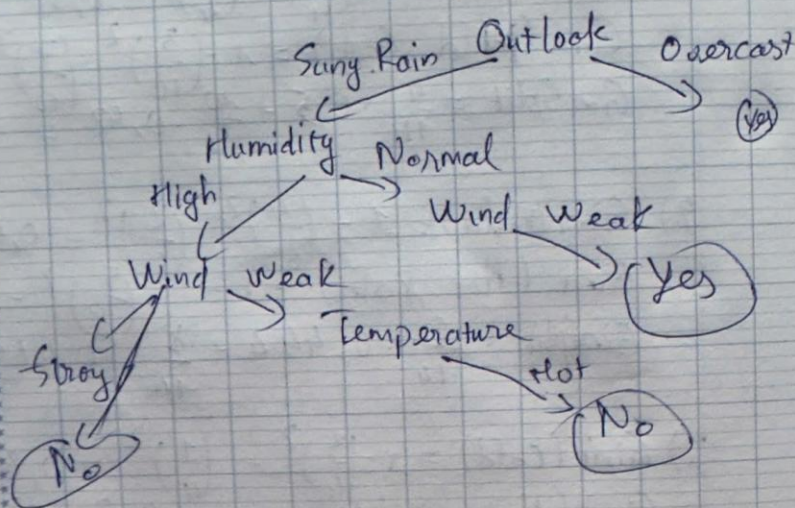 Suny Rain Outlook Overcast
Yes
Humidity Normal
High
Wind Weak
Yes
Wind Weak
Temperature
Stroy
Hot
No
No